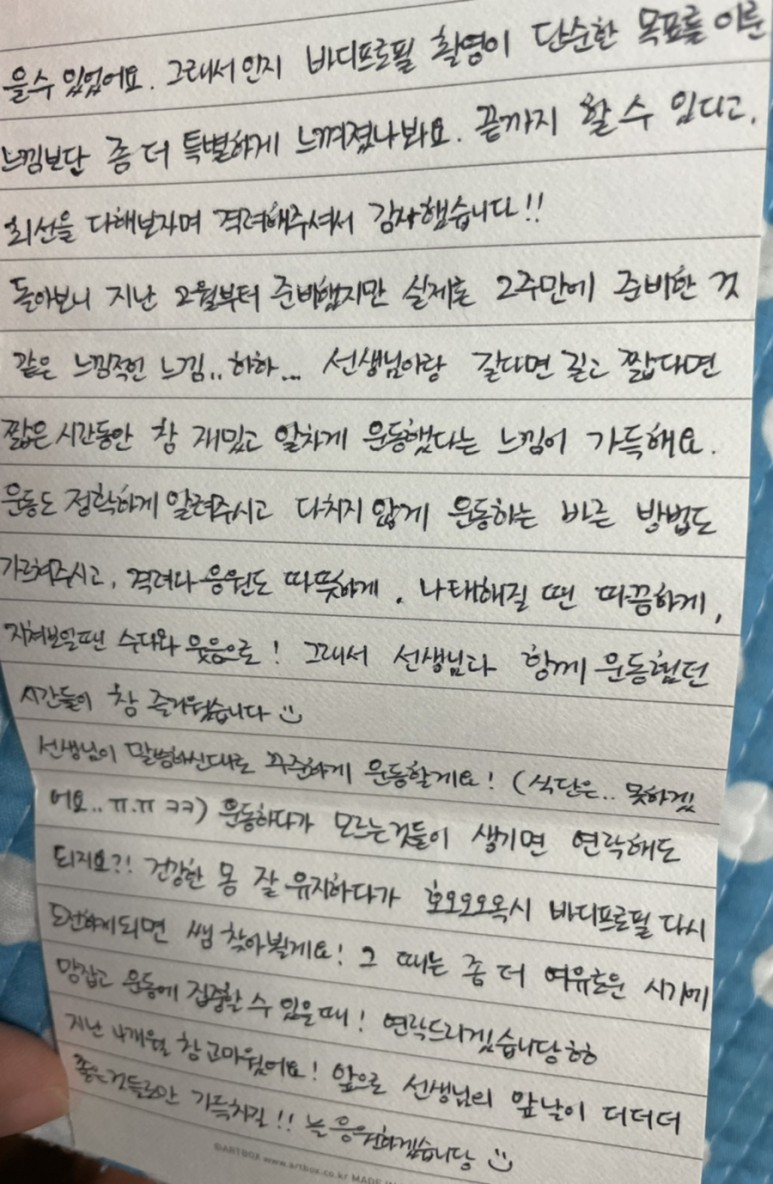 을수 있었어요. 그래서인지 바디프로필 촬영이 단순한 목표를 이룬
느낌보단 좀 더 특별하게 느껴졌나봐요. 끝까지 할 수 있다고,
최선을 다해보자며 격려해주셔서 감사했습니다!!
돌아보니 지난 2월부터 준비했지만 실제론 2주만에 준비한 것
같은 느낌적인 느낌.. 하하... 선생님이랑 길다면 길고 짧다면
짧은 시간동안 참 재밌고 알차게 운동했다는 느낌이 가득해요.
운동도 정확하게 알려주시고 다치지 않게 운동하는 바른 방법도
가르쳐주시고, 격려나 응원도 따뜻하게, 나태해질 땐 따끔하게,
지쳐보일땐 수다와 웃음으로! 그래서 선생님과 함께 운동했던
시간들이 참 즐거웠습니다
선생님이 말씀하신대로 꾸준하게 운동할게요! (식단은.. 못하겠
어요.. ㅠ.ㅠ ㅋㅋ) 운동하다가 모르는것들이 생기면 연락해도
되지요?! 건강한 몸 잘 유지하다가 호오오오옥시 바디프로필 다시
도전하게되면 쌤 찾아뵐게요! 그 때는 좀 더 여유로운 시기에
맘잡고 운동에 집중할 수 있을때! 연락드리겠습니당ㅎㅎ
지난 4개월 참 고마웠어요! 앞으로 선생님의 앞날이 더더더
좋은것들로만 가득차길!! 늘 응원하겠습니당
©ARTBOX www.artbox.co.kr MADE IN